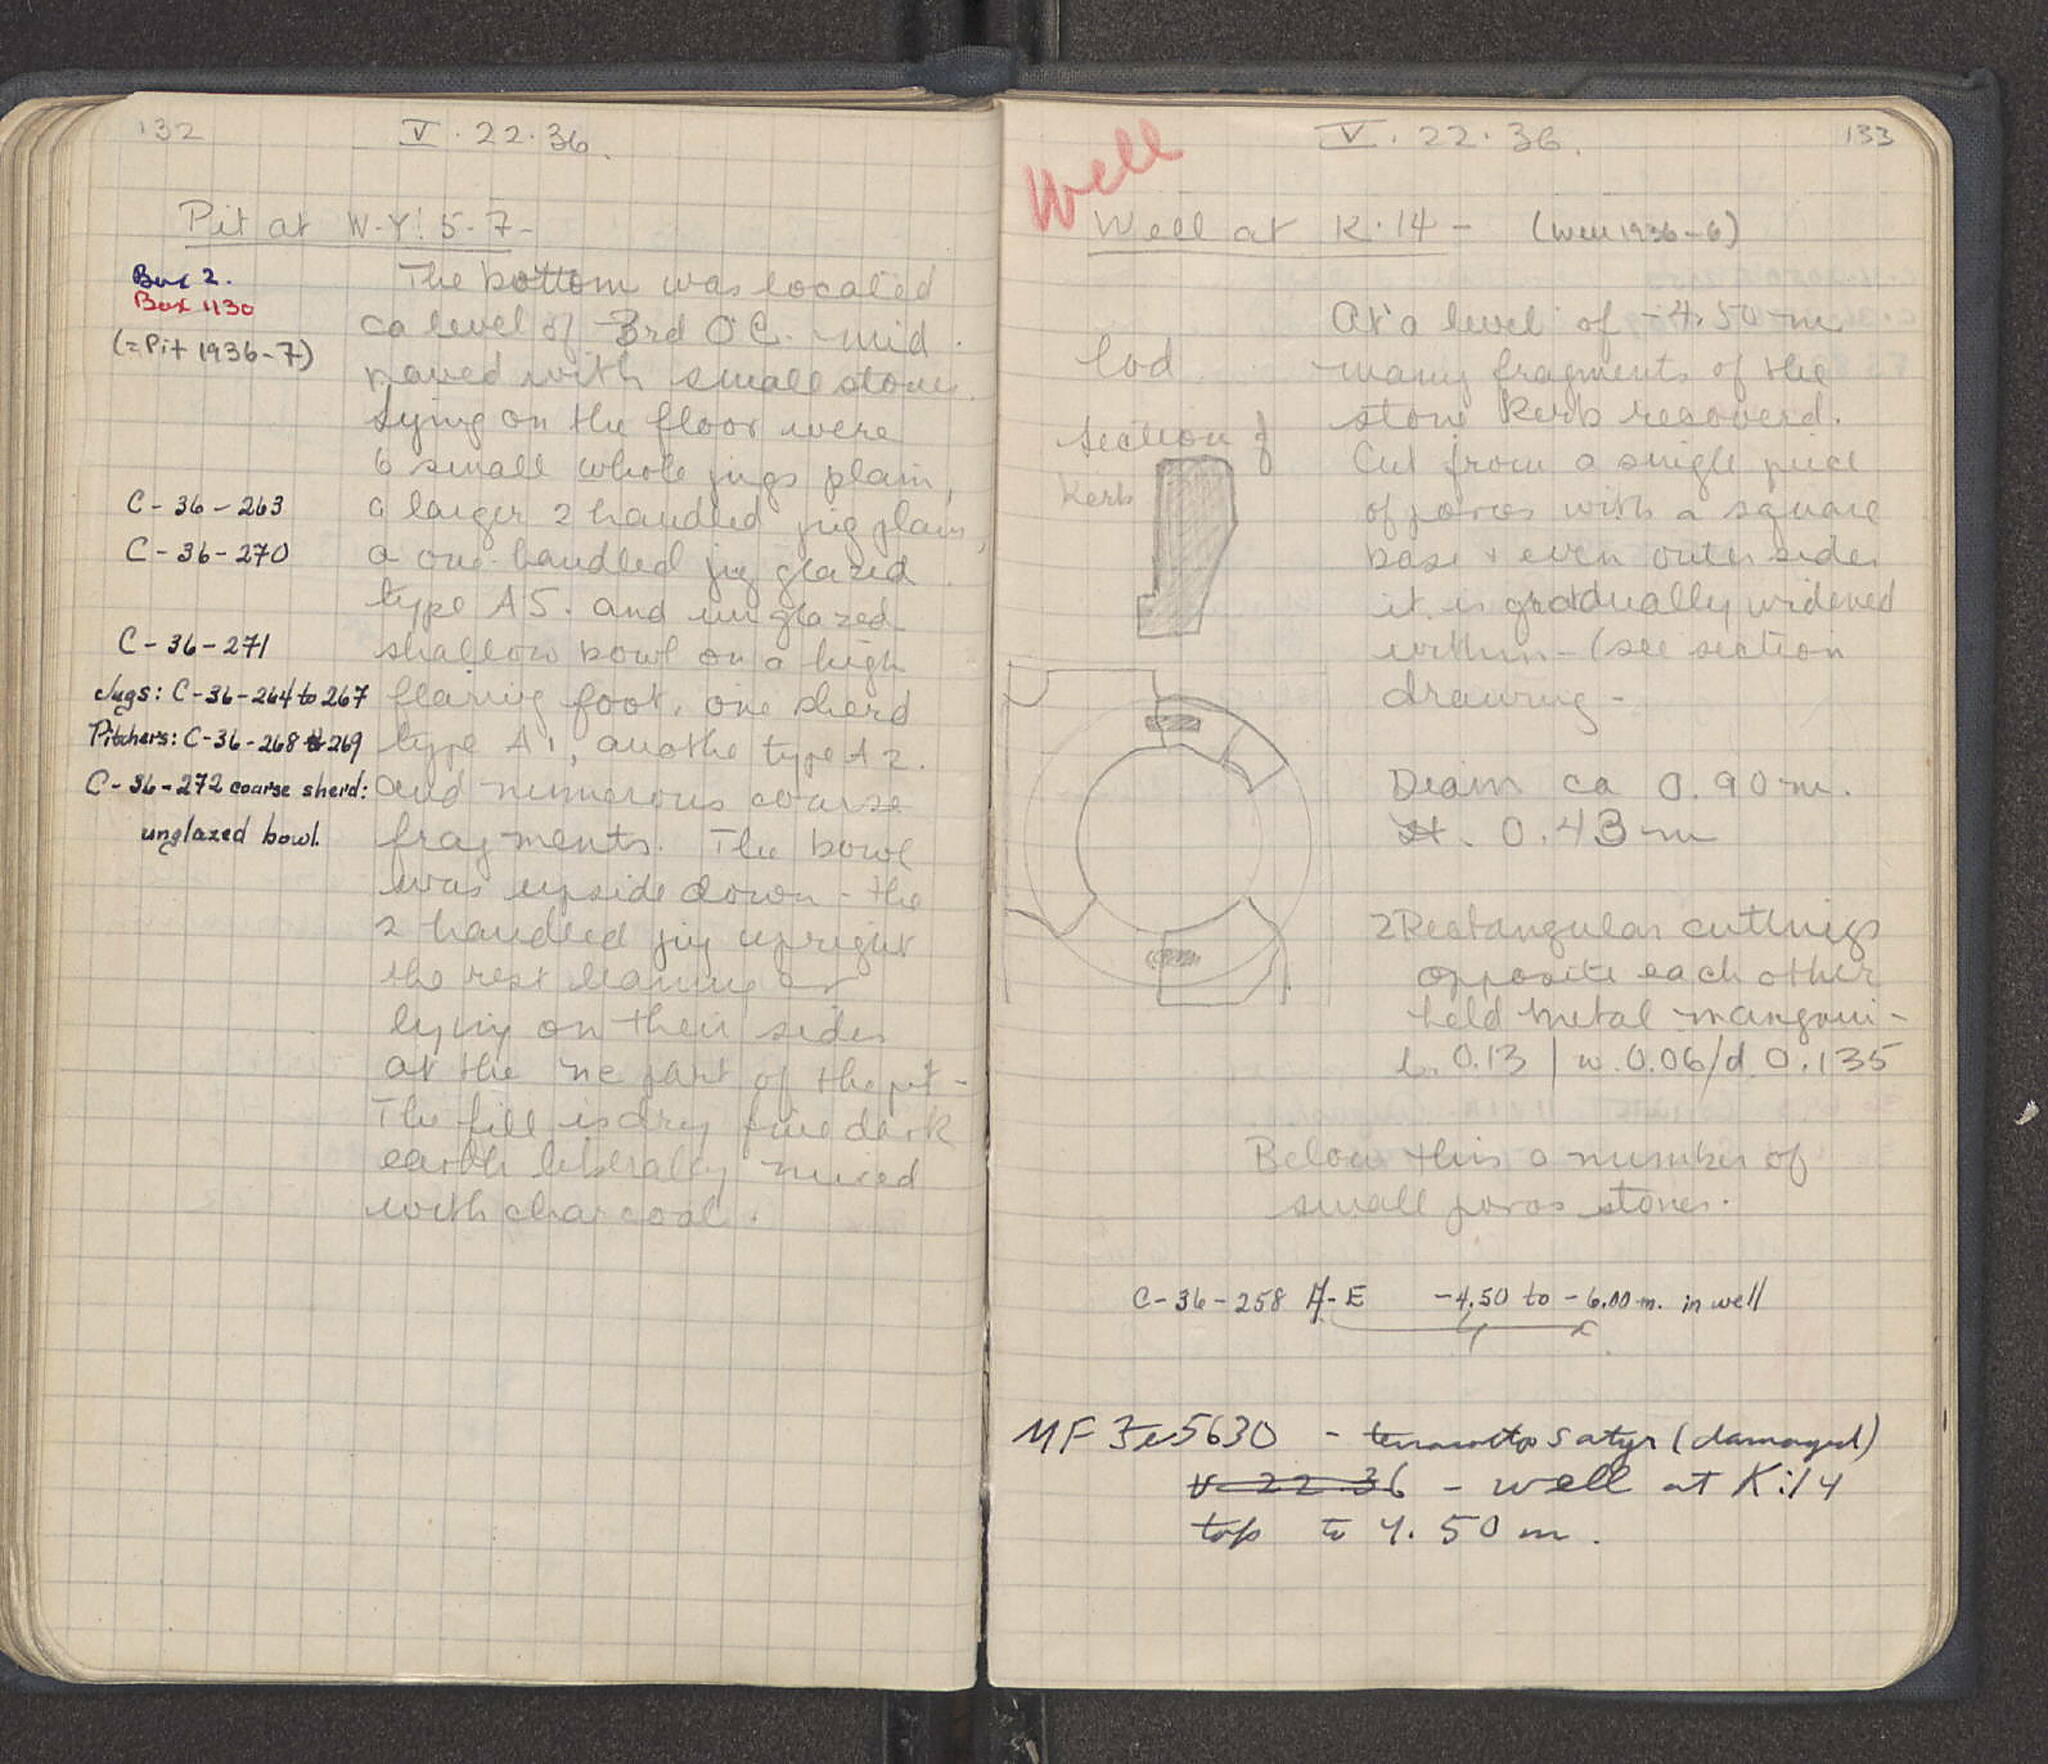 132
V. 22. 36.
Pit at W-Y! 5-7-
Box 2.
Box 1130
(=Pit 1936-7)
The bottom was located
ca level of 3rd OC. mid.
paved with small stones.
Lying on the floor were
6 small whole jugs plain,
C-36-263
a larger 2 handled jug plain,
C-36-270
a one-handled jug glazed
type A5. and unglazed
C-36-271
shallow bowl on a high
Jugs: C-36-264 to 267
flaring foot, one sherd
Pitchers: C-36-268 269
type A1, anothe type A2.
C-36-272 coarse sherd:
and numerous coarse
unglazed bowl.
fragments. The bowl
was upside down - the
2 handled jug upright
the rest leaning or
lying on their sides
at the ne part of the pit -
The fill is dry fine dark
earth liberally mixed
with charcoal.
133
V. 22. 36.
Well
Well at K.14 - (Well 1936-6)
At a level of -4.50 m
many fragments of the
stone Kerb recoverd.
Cut from a single piece
of poros with a square
base + even outer sides
it is gradually widened
within - (see section
drawing -
section of
Kerb
Diam ca 0.90 m.
H. 0.43 m
2 Rectangular cuttings
opposite each other
held metal
L. 0.13 | w. 0.06/d. 0.135
Below this a number of
small poros stones.
C-36-258 A-E -4.50 to -6.00 m. in well
MF 5630 - terracotta satyr (damaged)
V 22 36 - well at K:14
top to 4.50 m.